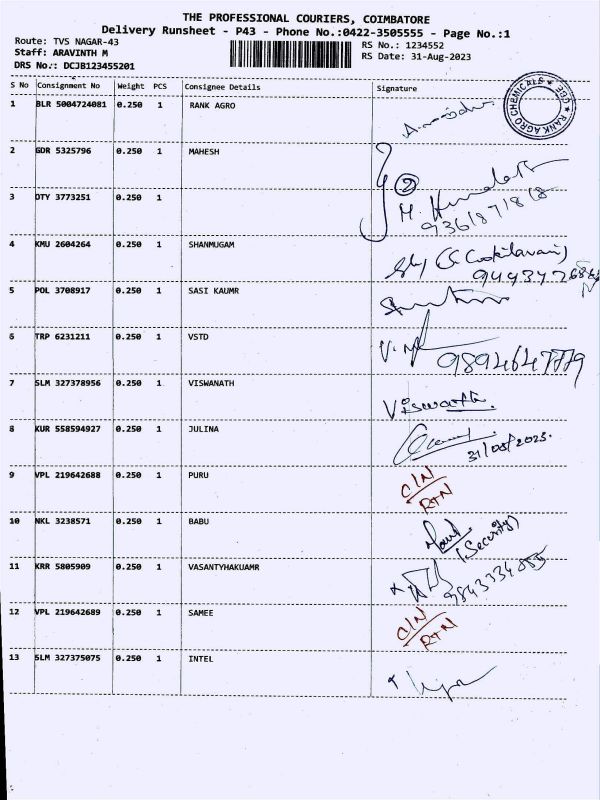 THE PROFESSIONAL COURIERS, COIMBATORE
Delivery Runsheet - P43 - Phone No.:0422-3505555 - Page No.:1
Route: TVS NAGAR-43
RS No.: 1234552
Staff: ARAVINTH M
RS Date: 31-Aug-2023
DRS No.: DCJB123455201
S No Consignment No Weight PCS Consignee Details Signature
1 BLR 5004724081 0.250 1 RANK AGRO
RANK AGRO CHEMICALS CBE
2 GDR 5325796 0.250 1 MAHESH
2
3 DTY 3773251 0.250 1
9361871818
4 KMU 2604264 0.250 1 SHANMUGAM
5 POL 3708917 0.250 1 SASI KAUMR
6 TRP 6231211 0.250 1 VSTD
9894647779
7 SLM 327378956 0.250 1 VISWANATH
Viswanth.
8 KUR 558594927 0.250 1 JULINA
31/08/2023.
9 VPL 219642688 0.250 1 PURU
C/N
RTN
10 NKL 3238571 0.250 1 BABU
(Security)
11 KRR 5805909 0.250 1 VASANTYHAKUAMR
12 VPL 219642689 0.250 1 SAMEE
C/N
RTN
13 SLM 327375075 0.250 1 INTEL